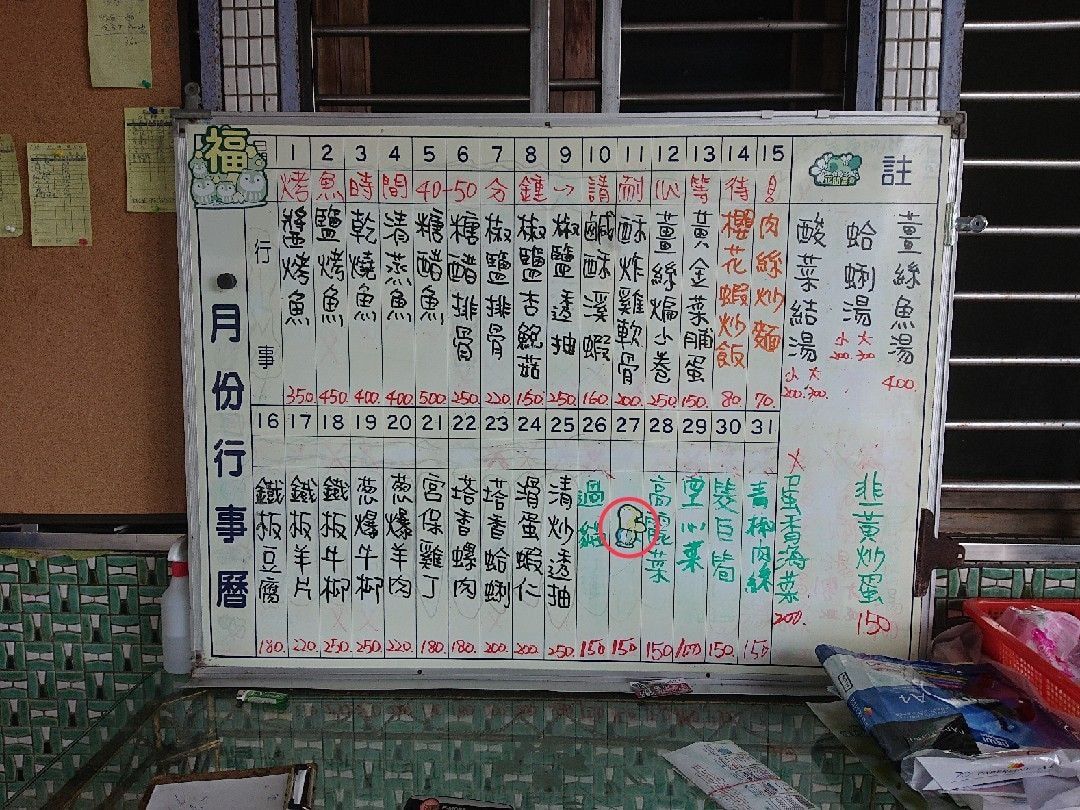 福
1 2 3 4 5 6 7 8 9 10 11 12 13 14 15
註
烤魚時間40-50分鐘→請耐心等待!
行事
月份行事曆
醬烤魚 350.
鹽烤魚 450.
乾燒魚 400.
清蒸魚 400.
糖醋魚 500
糖醋排骨 250.
椒鹽排骨 220
椒鹽杏鮑菇 150.
椒鹽透抽 250.
鹹酥溪蝦 160
酥炸雞軟骨 200.
薑絲煸小卷 250
黃金菜脯蛋 150.
櫻花蝦炒飯 80.
肉絲炒麵 70.
酸菜結湯 小200. 大300.
蛤蜊湯 小200. 大300
薑絲魚湯 400.
16 17 18 19 20 21 22 23 24 25 26 27 28 29 30 31
鐵板豆腐 180.
鐵板羊片 220.
鐵板牛柳 250.
蔥爆牛柳 250
蔥爆羊肉 220.
宮保雞丁 180.
塔香螺肉 180.
塔香蛤蜊 200.
滑蛋蝦仁 200.
清炒透抽 250.
過貓 150
150.
高麗菜 150
空心菜 100
150.
青椒肉絲 150
蛋香海菜 200.
韭黃炒蛋 150
A4